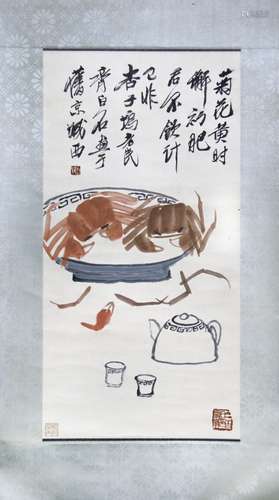 菊花黄时
蟹初肥
君不饮计
已非
杏子坞老民
齐白石画于
旧京城西